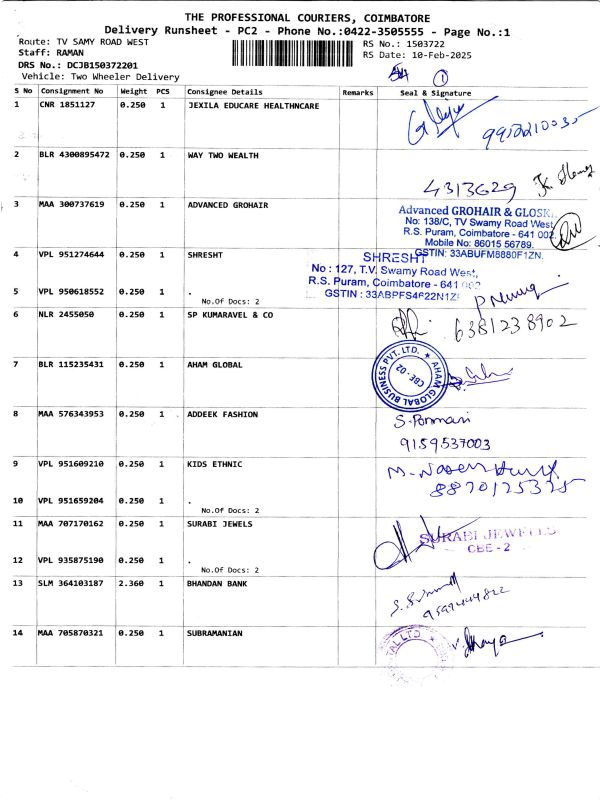 THE PROFESSIONAL COURIERS, COIMBATORE
Delivery Runsheet - PC2 - Phone No.:0422-3505555 - Page No.:1
Route: TV SAMY ROAD WEST
RS No.: 1503722
Staff: RAMAN
RS Date: 10-Feb-2025
DRS No.: DCJB150372201
Vehicle: Two Wheeler Delivery
1
S No Consignment No Weight PCS Consignee Details Remarks Seal & Signature
1 CNR 1851127 0.250 1 JEXILA EDUCARE HEALTHNCARE
2 BLR 4300895472 0.250 1 WAY TWO WEALTH
4313629
3 MAA 300737619 0.250 1 ADVANCED GROHAIR
Advanced GROHAIR & GLOSK
No: 138/C, TV Swamy Road West,
R.S. Puram, Coimbatore - 641 002
Mobile No: 86015 56789.
GSTIN: 33ABUFM8880F1ZN.
4 VPL 951274644 0.250 1 SHRESHT
SHRESHT
No : 127, T.V. Swamy Road West,
R.S. Puram, Coimbatore - 641 002
GSTIN : 33ABPFS4F22N1Z
5 VPL 950618552 0.250 1 .
No.Of Docs: 2
6 NLR 2455050 0.250 1 SP KUMARAVEL & CO
6381238902
7 BLR 115235431 0.250 1 AHAM GLOBAL
AHAM GLOBAL BUSINESS PVT. LTD. ★
CBE-02
8 MAA 576343953 0.250 1 ADDEEK FASHION
9159537003
9 VPL 951609210 0.250 1 KIDS ETHNIC
8870175375
10 VPL 951659204 0.250 1 .
No.Of Docs: 2
11 MAA 707170162 0.250 1 SURABI JEWELS
SURABI JEWELLS
CBE - 2
12 VPL 935875190 0.250 1 .
No.Of Docs: 2
13 SLM 364103187 2.360 1 BHANDAN BANK
14 MAA 705870321 0.250 1 SUBRAMANIAN